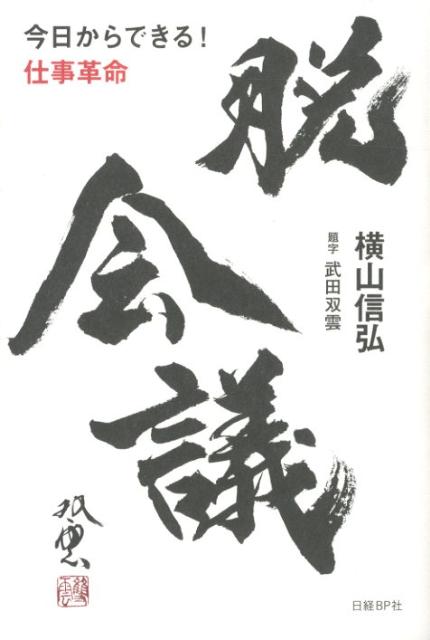 今日からできる!
仕事革命
脱
会
議
横山信弘
題字 武田双雲
双雲
日経BP社